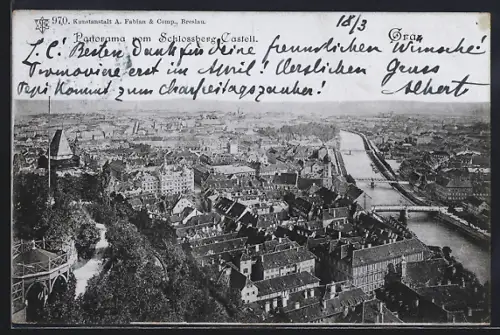 970. Kunstanstalt A. Fabian & Comp., Breslau.
18/3
Panorama vom Schlossberg Castell.
Graz
L. C.! Besten Dank für Deine freundlichen Wünsche!
Promoviere erst im April! Herzlichen Gruss
Pepi kommt zum Charfreitagszauber! Albert